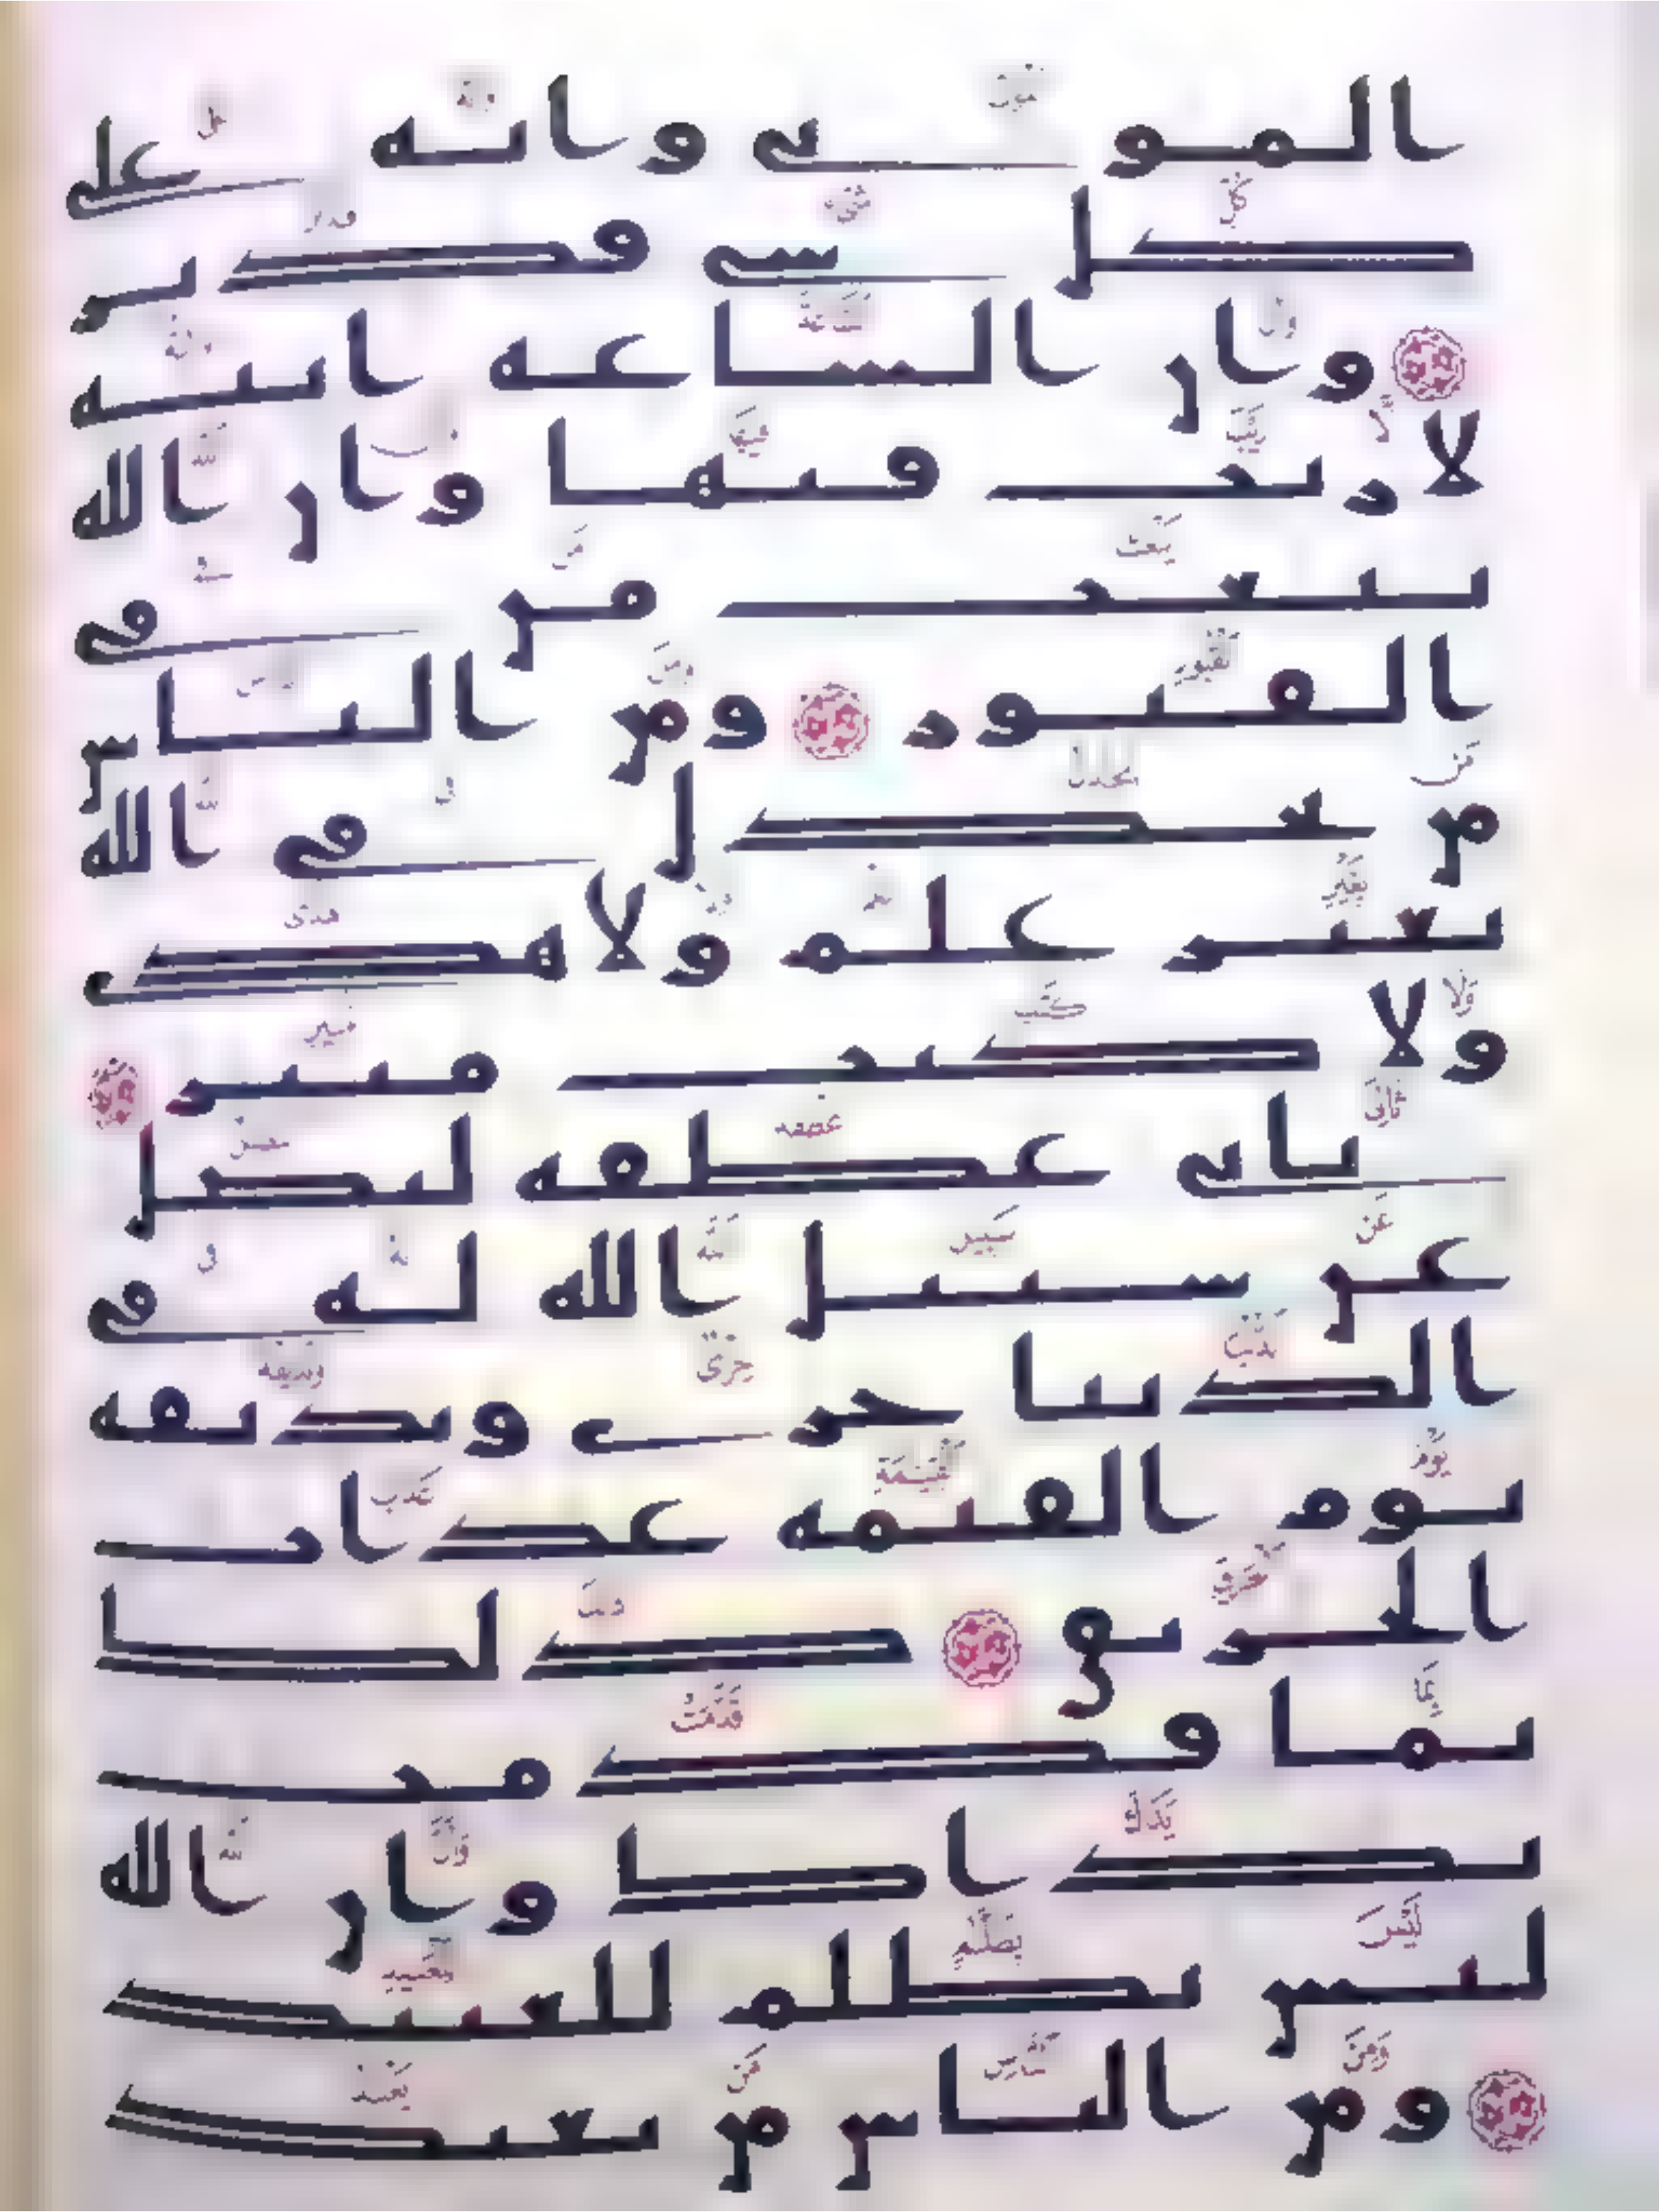 الموتى وانه على
كل شى قدير
وان الساعه اتيه
لا ريب فيها وان الله
يبعث من فى
القبور ومن الناس
من يجدل فى الله
بغير علم ولا هدى
ولا كتب منير
ثانى عطفه ليضل
عن سبيل الله له فى
الدنيا خزى ونذيقه
يوم القيمه عذاب
الحريق ذلك
بما قدمت
يداك وان الله
ليس بظلم للعبيد
ومن الناس من يعبد